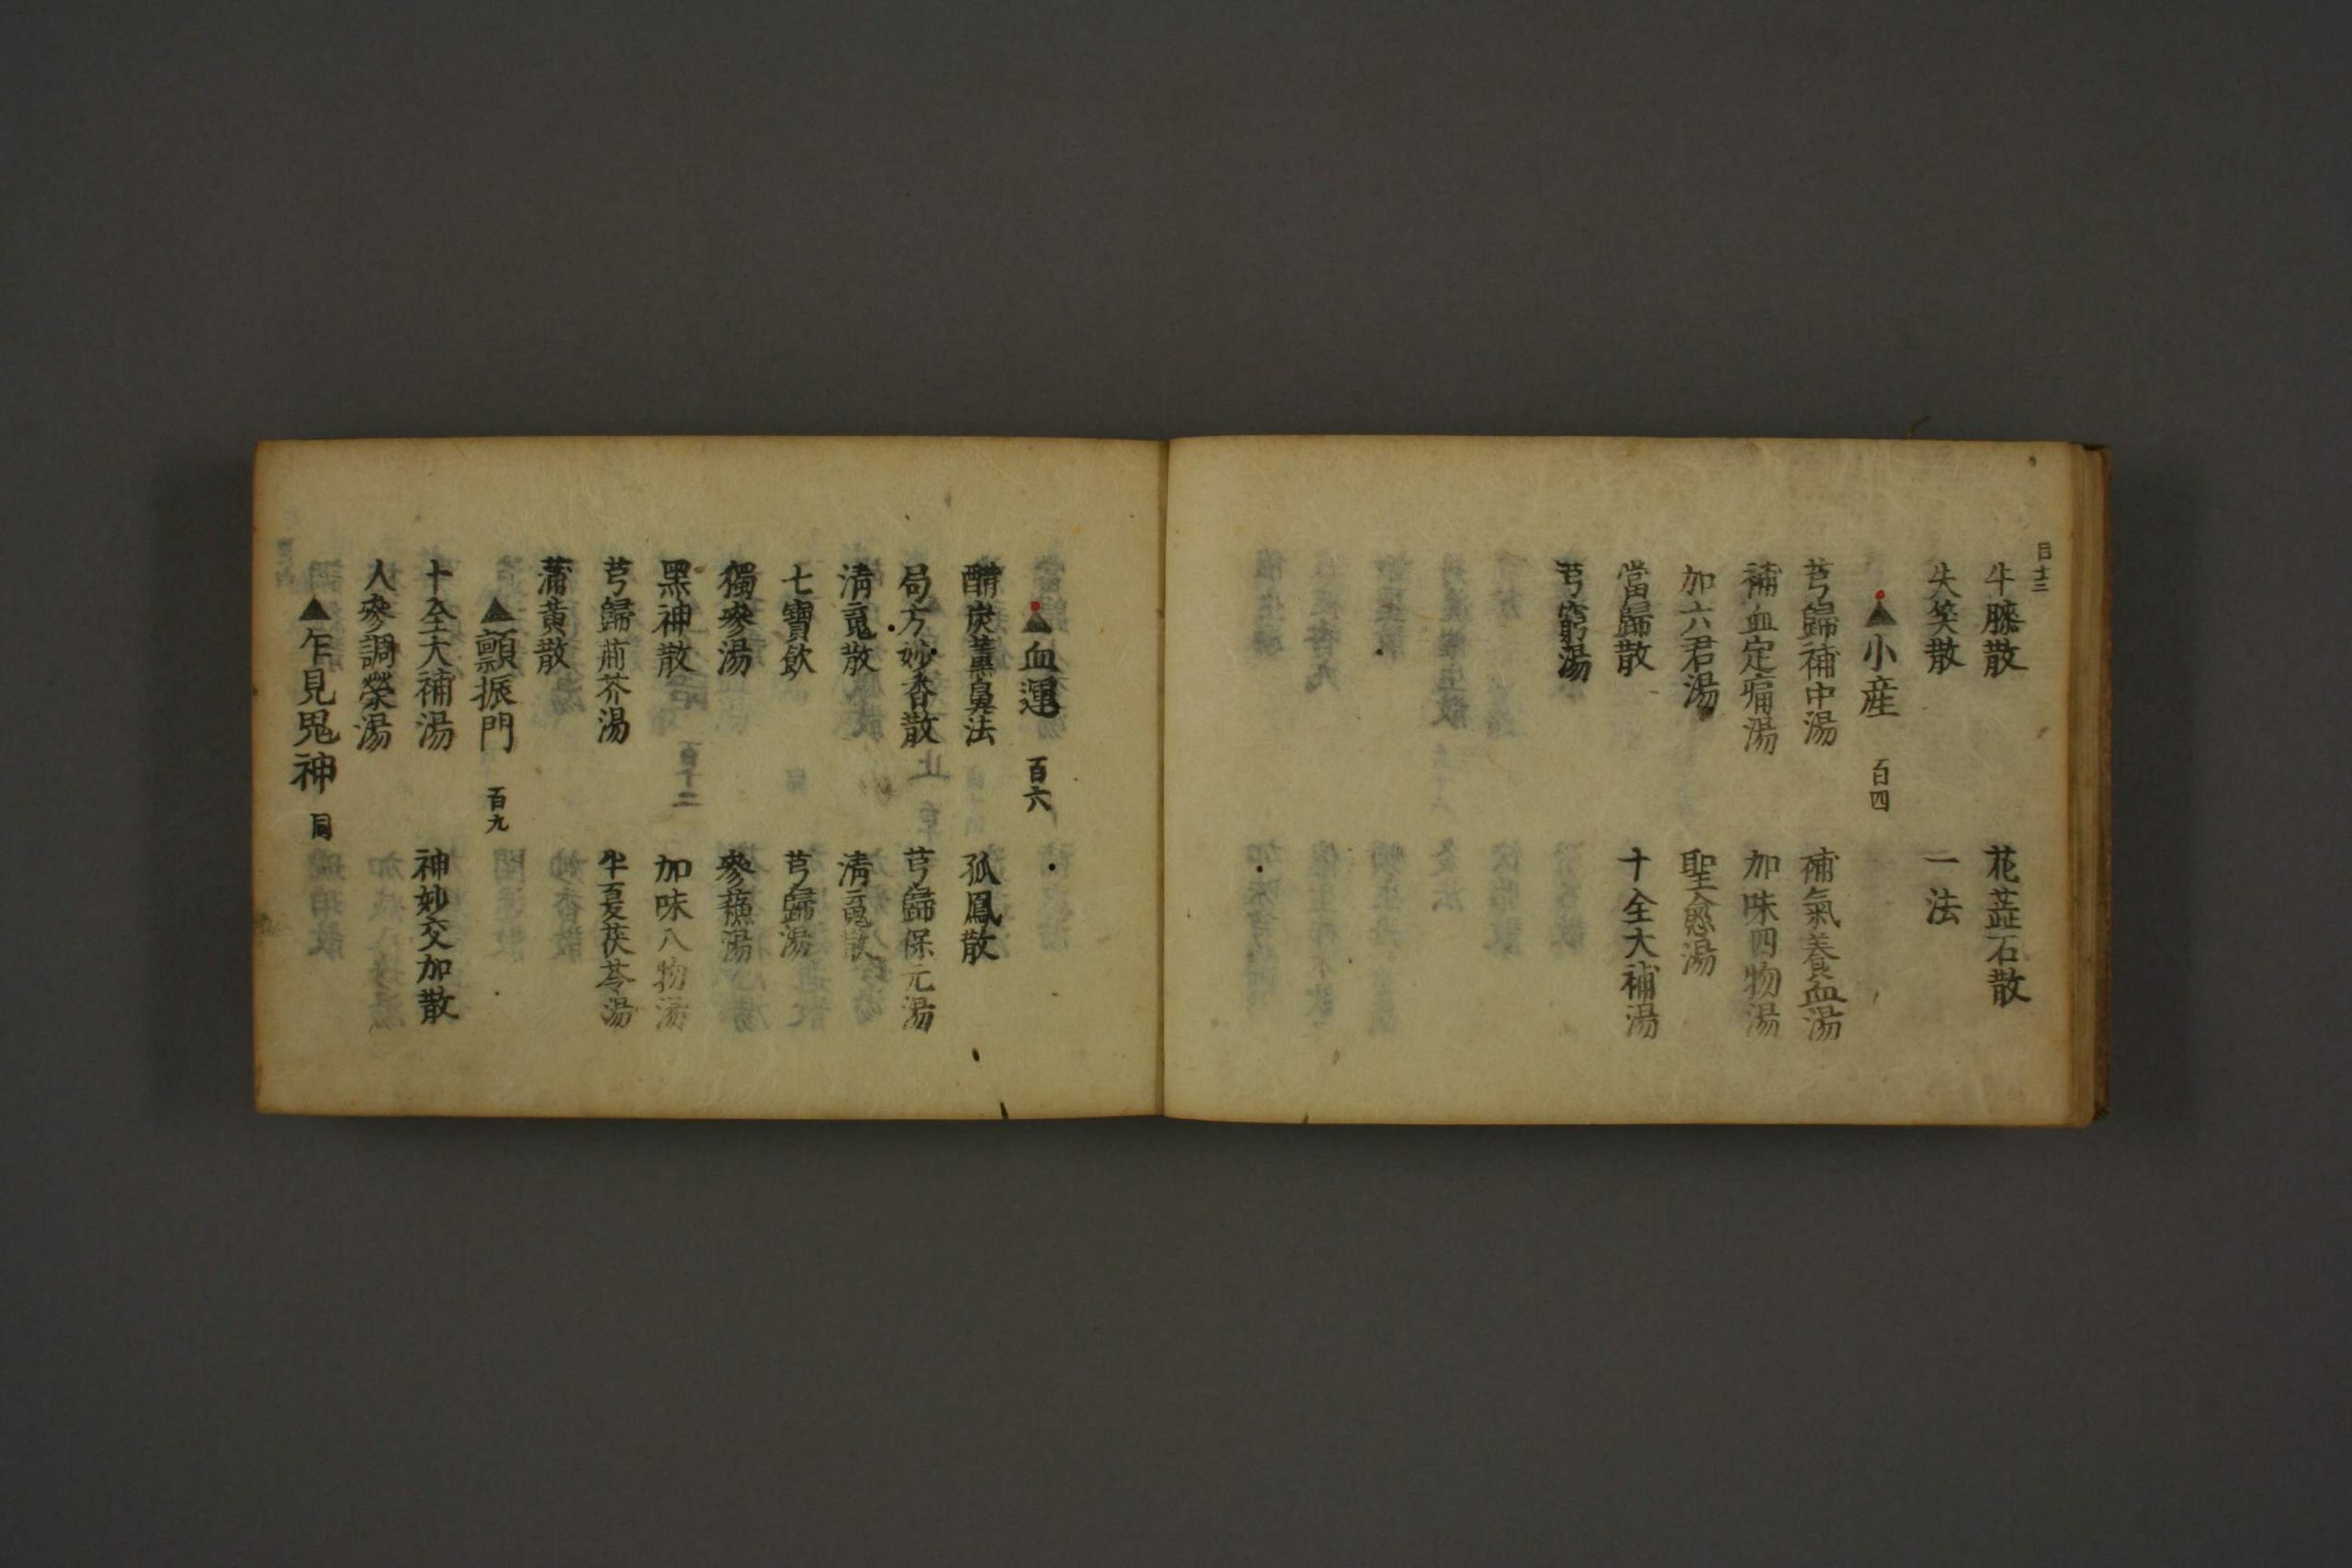 目十三
牛膝散 花蕋石散
失笑散 一法
▲小産 百四
芎歸補中湯 補氣養血湯
補血定痛湯 加味四物湯
加六君湯 聖愈湯
當歸散 十全大補湯
芎窮湯
▲血運 百六
醋炭薫鼻法 孤鳳散
局方妙香散 芎歸保元湯
清䰟散 清䰟散
七寶飲 芎歸湯
獨參湯 參蘓湯
黑神散 加味八物湯
芎歸荊芥湯 半夏茯苓湯
蒲黄散
▲顫振門 百九
十全大補湯 神妙交加散
人參調榮湯
▲乍見鬼神 同